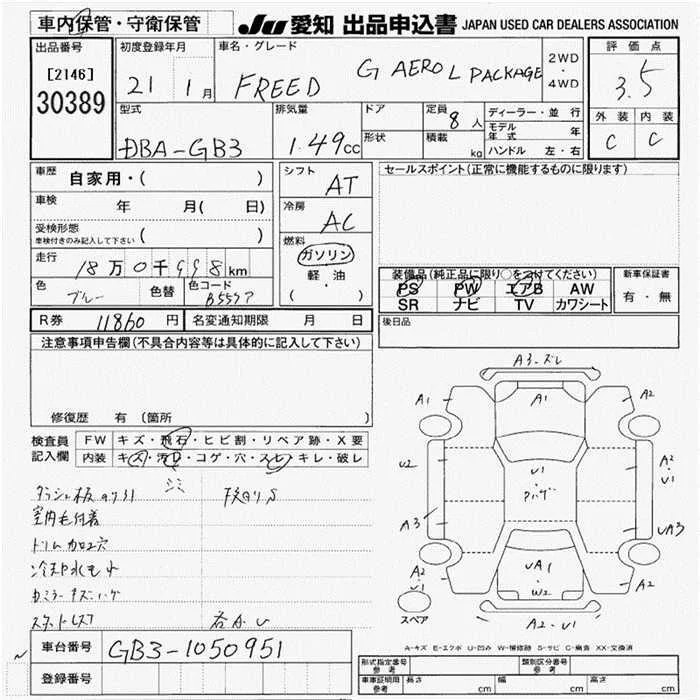 車内保管・守衛保管 JU 愛知 出品申込書 JAPAN USED CAR DEALERS ASSOCIATION
出品番号 初度登録年月 車名・グレード 2WD・4WD 評価点
[2146] 30389 21 1月 FREED G AERO L PACKAGE 3.5
型式 排気量 ドア 定員 8人 ディーラー・並行 外装 内装
DBA-GB3 1.49cc 形状 積載 kg モデル年式 年 C C
ハンドル 左・右
車歴 自家用・( ) シフト AT セールスポイント(正常に機能するものに限ります)
車検 年 月( 日) 冷房 AC
受検形態 車検付きのみ記入して下さい ( )
燃料 ガソリン 軽・油 ( )
走行 18万0千998km 装備品(純正品に限り○をつけてください) 新車保証書
色 ブルー 色替 色コード B557P PS PW エアB AW 有・無
SR ナビ TV カワシート
R券 11860円 名変通知期限 月 日 後日品
注意事項申告欄(不具合内容等は具体的に記入して下さい)
修復歴 有 (箇所
検査員記入欄 FW キズ・飛石・ヒビ割・リペア跡・X要
内装 キズ・汚れ・コゲ・穴・スレ・キレ・破レ
シミ
室内毛付着
ドリム加工穴
冷却水モレ
A3-ズレ
A1 A1 A2
U2 U1 A2 U1
A3 UA3
A2 U1 UA1 W2 A2
スペア A2-U1
A-キズ E-エクボ U-凹み W-補修跡 S-サビ C-腐食 XX-交換済
車台番号 GB3-1050951
登録番号
形式指定番号 参考 類別区分番号 参考
車車証明用 参考 長さ cm 幅 cm 高さ cm